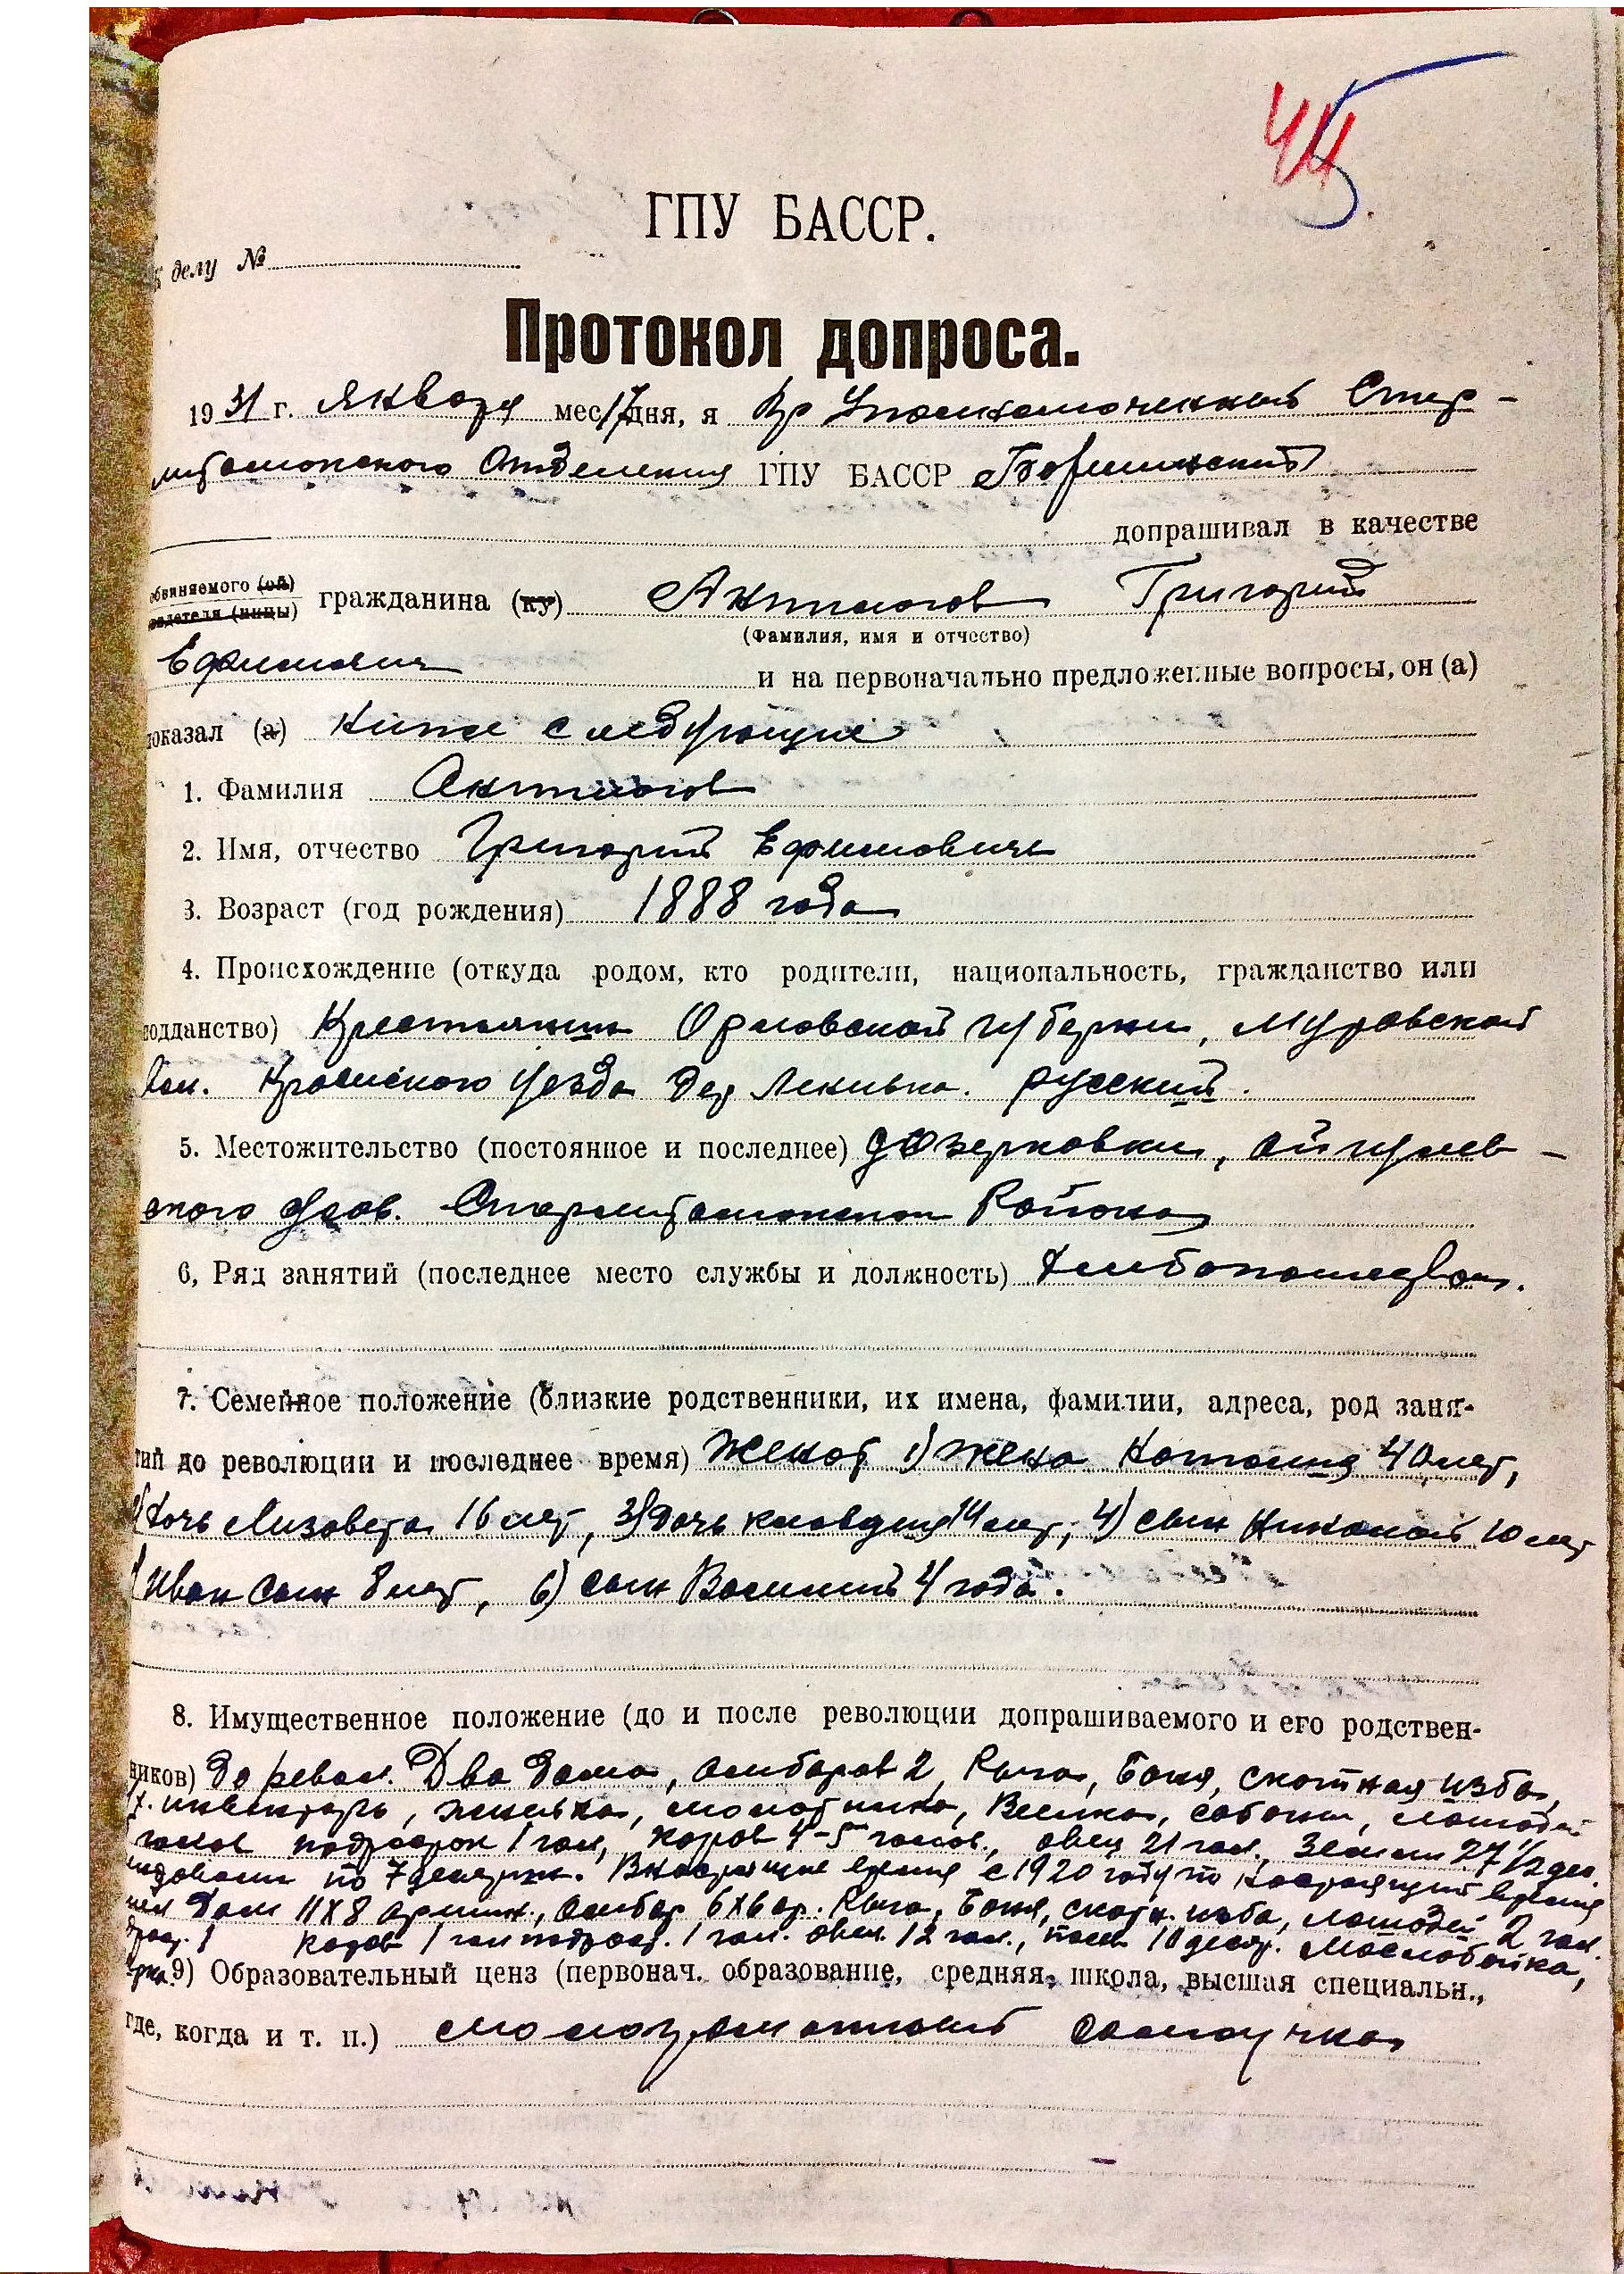 45
ГПУ БАССР.
к делу №
Протокол допроса.
1931 г. Января мес 17 дня, я Вр Уполномоченный Стер-
литамакского Отделения ГПУ БАССР
допрашивал в качестве
обвиняемого (ой)
свидетеля (ницы) гражданина (ку) Антипов Григорий
(Фамилия, имя и отчество)
Ефимович и на первоначально предложенные вопросы, он (а)
показал (а) ниже следующие
1. Фамилия Антипов
2. Имя, отчество Григорий Ефимович
3. Возраст (год рождения) 1888 года
4. Происхождение (откуда родом, кто родители, национальность, гражданство или
подданство) Крестьянин Орловской губерни,
вол. уезда дер русский.
5. Местожительство (постоянное и последнее) д Озерковки,
ского с/сов. Стерлитамакского Района
6, Ряд занятий (последнее место службы и должность) Хлебопашество.
7. Семейное положение (близкие родственники, их имена, фамилии, адреса, род заня-
тий до революции и последнее время) Женат 1) жена 40 лет,
2) дочь Лизовета 16 лет, 3) дочь Клавдия 14 лет, 4) сын Николай 10 лет
Иван сын 8 лет, 6) сын Василий 4 года.
8. Имущественное положение (до и после революции допрашиваемого и его родствен-
ников) До револ. Два дома, амбаров 2, Рига, Баня, скотная изба,
инвентарь, жнейка, молотилка, Веялка, сабаны, лошадей
голов подросток 1 гол, коров 4-5 голов, овец 21 гол., земли 27 1/2 дес.
по 7 десятин. В настоящие время с 1920 году по настоящий время
Дом 11х8 аршин, амбар 6х6 ар. Рига, Баня, скотн. изба, лошадей 2 гол.
1 коров 1 гол подрост. 1 гол. овец 12 гол., посев 10 десят. Маслобойка,
9) Образовательный ценз (первонач. образование, средняя, школа, высшая специальн.,
где, когда и т. п.) малограмотный самоучка